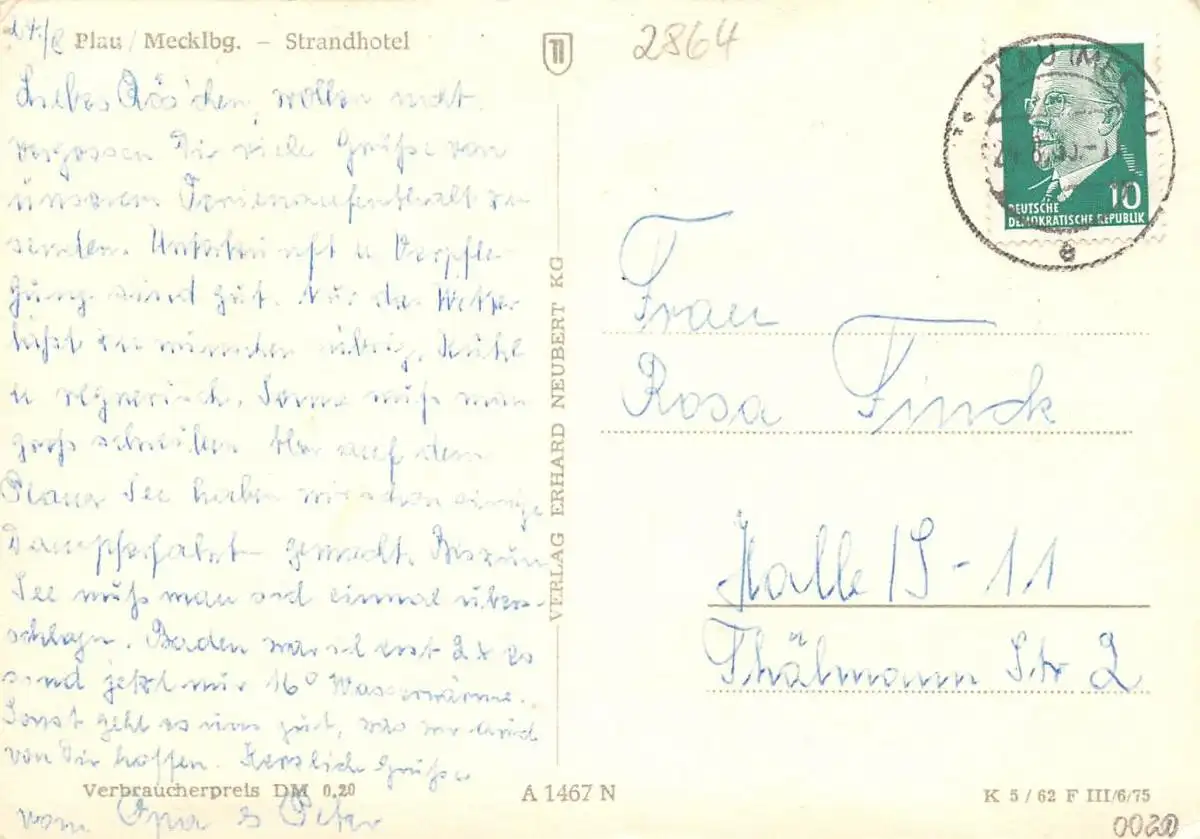 Plau / Mecklbg. – Strandhotel
2864
Liebes Rös'chen, wollen nicht
vergessen Dir viele Grüße von
unserem Ferienaufenthalt zu
senden. Unterkunft u. Verpfle-
gung sind gut. Nur das Wetter
läßt zu wünschen übrig. Kühl
u. regnerisch. Sonne muß man
groß schreiben. Aber auf dem
Plauer See haben wir schon einige
Dampferfahrt gemacht. Bis zum
See muß man sich einmal über-
schlagen. Baden war ich erst 2x es
sind jetzt nur 16° Wasserwärme.
Sonst geht es uns gut, was wir auch
von Dir hoffen. Herzliche Grüße
vom Opa & Peter
Verbraucherpreis DM 0,20
VERLAG ERHARD NEUBERT KG
A 1467 N
PLAU (MECKL)
10
DEUTSCHE
DEMOKRATISCHE REPUBLIK
e
Frau
Rosa Finck
Halle/S-11
Thälmann Str 2
K 5/62 F III/6/75
0020